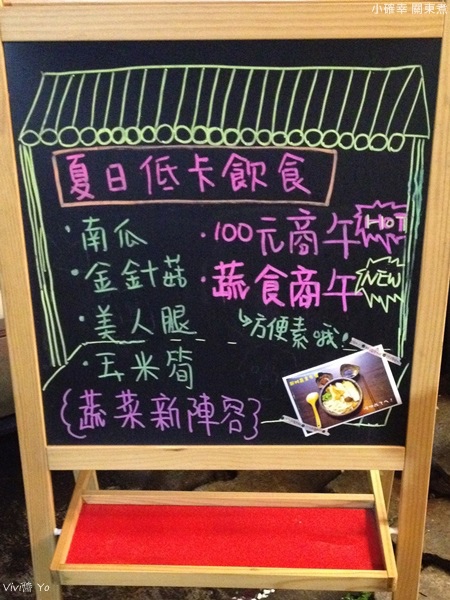 小確幸 關東煮
夏日低卡飲食
·南瓜
·金針菇
·美人腿
·玉米筍
{蔬菜新陣容}
·100元商午 HOT
·蔬食商午 NEW
↳方便素哦!
Vivi醬 Yo